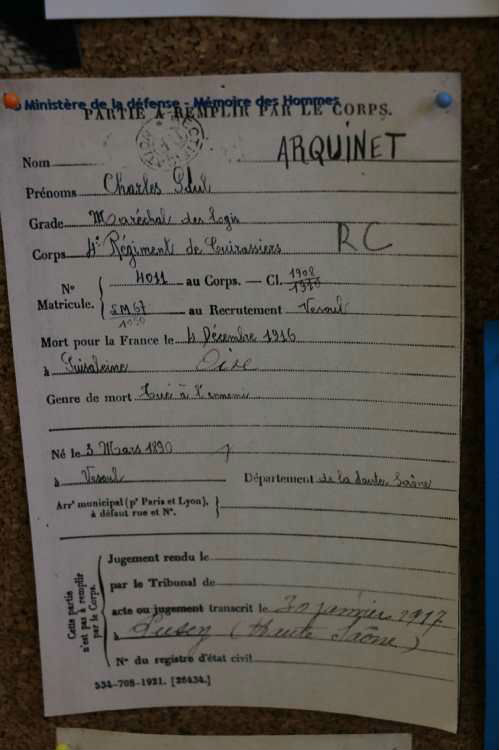 Ministère de la défense - Mémoire des Hommes
PARTIE A REMPLIR PAR LE CORPS.
Nom ARQUINET
Prénoms Charles Paul
Grade Maréchal des Logis
Corps 4e Régiment de Cuirassiers RC
N° Matricule. { 4011 au Corps. — Cl. 1908
1910
2M67 au Recrutement Vesoul
1050
Mort pour la France le 4 Décembre 1916
à Puisaleine Oise
Genre de mort Tué à l'ennemi
Né le 3 Mars 1890
à Vesoul Département de la Haute Saône
Arrt municipal (pr Paris et Lyon), }
à défaut rue et N°.
Cette partie n'est pas à remplir par le Corps. {
Jugement rendu le
par le Tribunal de
acte ou jugement transcrit le janvier 1917
à (Haute Saône)
N° du registre d'état civil
534-708-1921. [26434.]